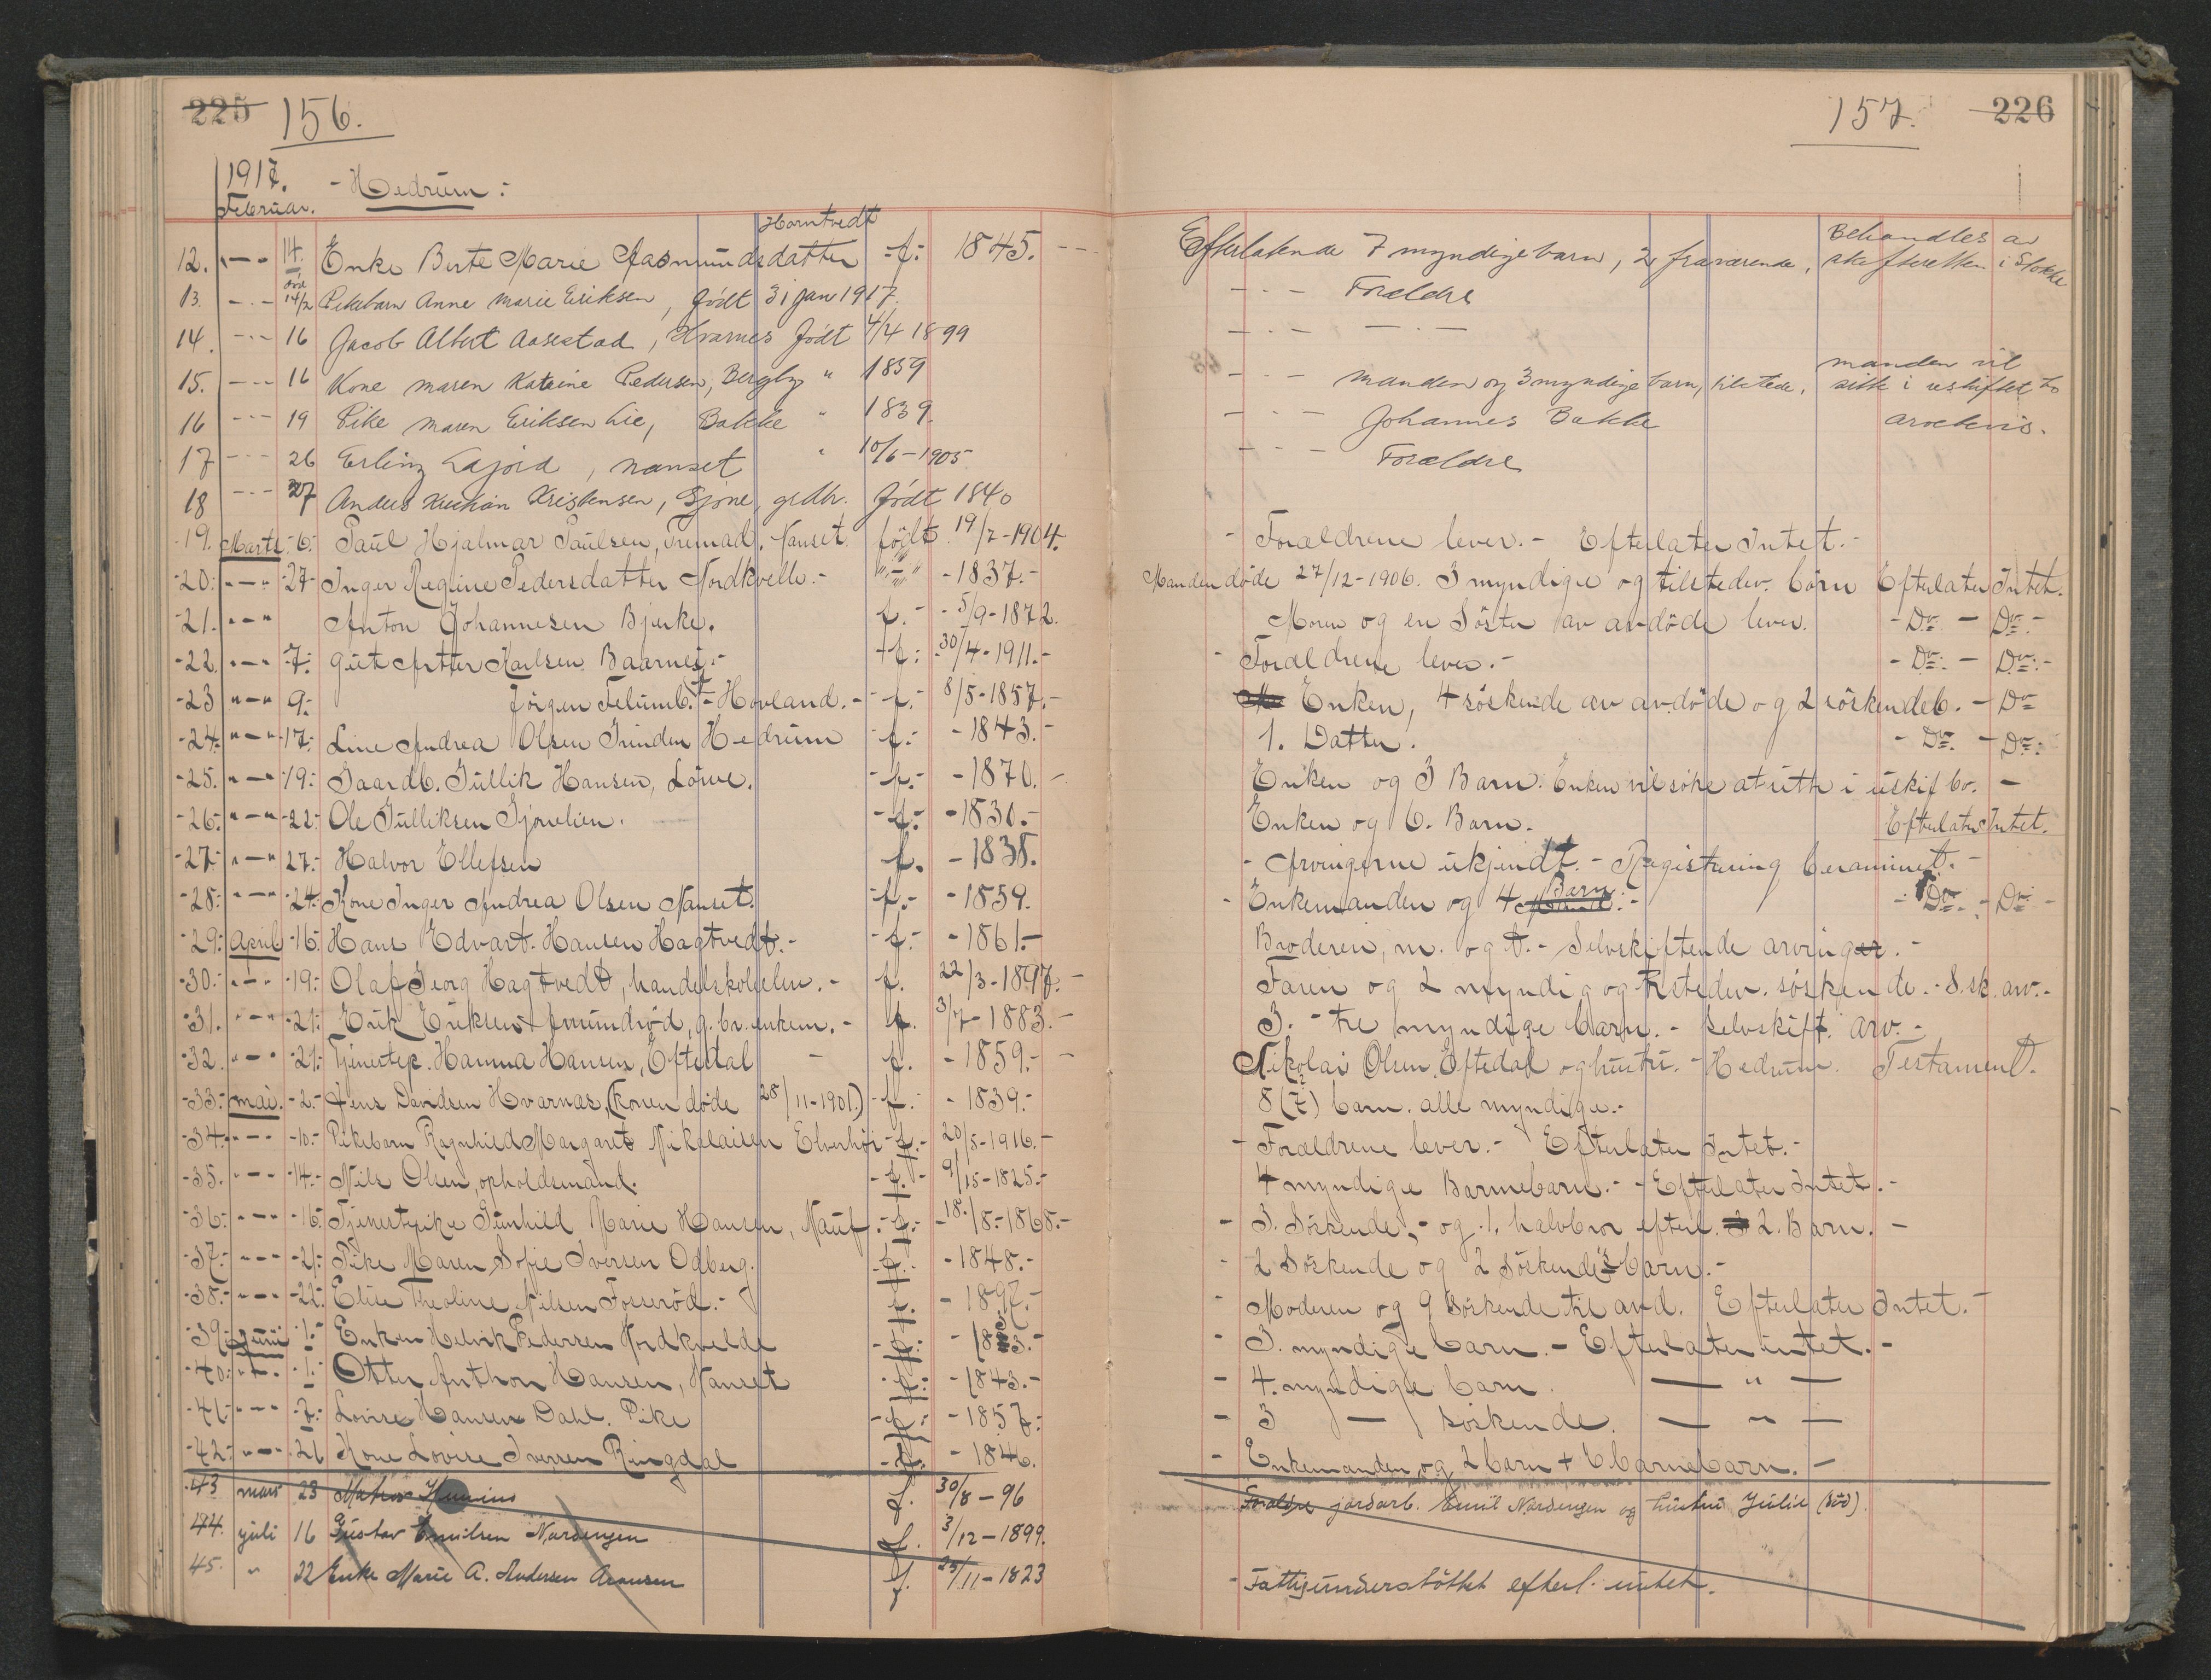 225 156.
157. 226
1917. - Hedrum :-
Februar.
Horntvedt
12. " — " 14. Enke Berte Marie Aasmundsdatter - f: 1845. Efterlatende 7 myndige barn, 2 fraværende, Behandles av skifteretten i Stokke
13. - · - død 14/2 Pikebarn Anne Marie Eriksen, født 31 jan 1917. - · - Forældre
14. - · - 16 Jacob Albert Aasestad, Hvarnes født 4/4 1899 - · - — · —
15. - · - 16 Kone Maren Katrine Pedersen, Bergby " 1839 - · - manden og 3 myndige barn, tilstede, manden vil sitte i uskiftet bo
16 - · - 19 Pike Maren Eriksen Lie, Bakke " 1839. - · - Johannes Bakke
17 - · - 26 Erling Lajord, Nanset " 10/6-1905 - · - Forældre
18 - · - 27 Anders Kristian Kristensen, Gjone, grdbr. født 1840
-19. Marts. -6:- Paul Hjalmar Paulsen, Tremad. Nanset. født 19/7-1904. - Forældrene lever. - Efterlater Intet. -
-20:- " — " -27- Inger Regine Pedersdatter Nordkvelle. - " — " -1837.- Manden døde 27/12-1906. 3 myndige og tilstedev. børn Efterlater Intet.
-21. " — " Anton Johannesen Bjerke. f. - 5/9-1872. Moren og en Søster av avdøde lever. - Do - Do -
-22. " — " -7:- Gut Artur Karlsen Baarnes - - f: 30/4-1911.- - Forældrene lever. - - Do: - Do: -
-23 " — " 9:- Jørgen - Hovland. - - f. - 8/5-1857.- Enken, 4 søskende av avdøde og 2 søskendeb. - Do
-24:- " — " -17:- Line Andrea Olsen Hedrum f. - -1843.- 1. Datter. - Do. - Do:
-25. " — " -19:- Gaardb. Gullik Hansen, Lørve. - f. - -1870. Enken og 3 Barn. Enken vil søke at sitte i uskif bo. -
-26:- " — " -22:- Ole Gulliksen Gjønelien. - f. - -1830.- Enken og 6. Barn. Efterlater Intet.
-27:- " — " 27:- Halvor Ellefsen f. - 1838. - Arvingerne ukjendt. - Registrering berammet. -
-28:- " — " -24:- Kone Inger Andrea Olsen Nanset. - f. - -1859. - Enkemanden og 4 Barn - - Do: - Do: -
-29:- April -16:- Hans Edvart. Hansen Hagtvedt. - - f. - -1861.- Broderen, m. og t. - Selvskiftende arvinger. -
-30:- " — " -19:- Olaf Georg Hagtvedt, handelskolelev. - f. 22/3-1897. - Faren og 2 myndig og tilstedev. søskende. - S.sk. arv. -
-31. " — " -21:- Erik Eriksen Amundrød, g. br. enkem. - f. 3/7-1883. - 3. - tre myndige barn. - selvskift. arv. -
-32. " — " -21:- Tjenestep. Hanna Hansen, Eftedal - f. -1859.- Nikolai Olsen, Eftedal og hustru. - Hedrum. Testament.
-33:- mai. -2.- Jens Davidsen Hvarnæs, (konen døde 28/11-1901.) - f. -1839.- 8 (7?) barn. alle myndige. -
-34:- " — " -10.- Pikebarn Ragnhild Margaret Nikolaisen Elverhøi - f. - 20/5-1916.- - Forældrene lever. - Efterlater Intet. -
-35. " — " -14.- Nils Olsen, opholdsmand. - f. - 9/15-1825.- 4 myndige Barnebarn. - - Efterlater Intet. -
-36:- " — " -16. Tjenestpike Gunhild Marie Hansen, Nauf. - f. - 18./8.-1868.- - 3. Søskende, - og 1. halvbror efterl. 2. Barn. -
-37.- " — " -21:- Pike Maren Sofie Iversen Odberg. - f. - -1848.- - 2 Søskende og 2 Søskende's barn. -
-38:- " — " -22:- Elise Theoline Nilsen Fosserød. - f. - 1897. - - Moderen og 9 Søskende til avd. Efterlater Intet. -
-39. Juni 1:- Enken Helvik Pedersen Nordkvelde - f: - - 3. myndige barn. - Efterlater intet. -
-40:- " — " 1:- Otter Anthon Hansen, Nanset - f: -1843.- - 4. myndige barn. — " —
-41:- " — " 7:- Lovise Hansen Dahl. Pike - f: -1857:- - 3 — søskende. — " —
-42:- " — " 26 Kone Lovise Iversen Ringdal - f. -1846. - Enkemanden og 2 barn + 6 barnebarn. -
43 mars 23 f. 30/8-96
44. juli 16 Gustav Emilsen Nordengen f. 3/12-1899. Forældre jordarb. Emil Nordengen og hustru Julie (død).
45. " 22 Enke Marie A. Andersen f. 25/11-1823 - Fattigunderstøttet efterl. intet.